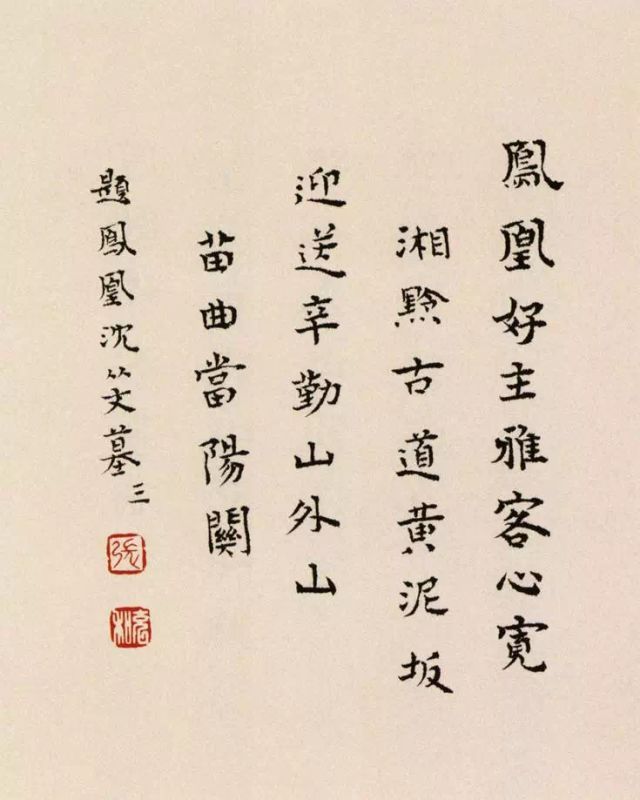 鳳凰好主雅客心寬
湘黔古道黄泥坂
迎送辛勤山外山
苗曲當陽關
題鳳凰沈从文墓 三
張
充和